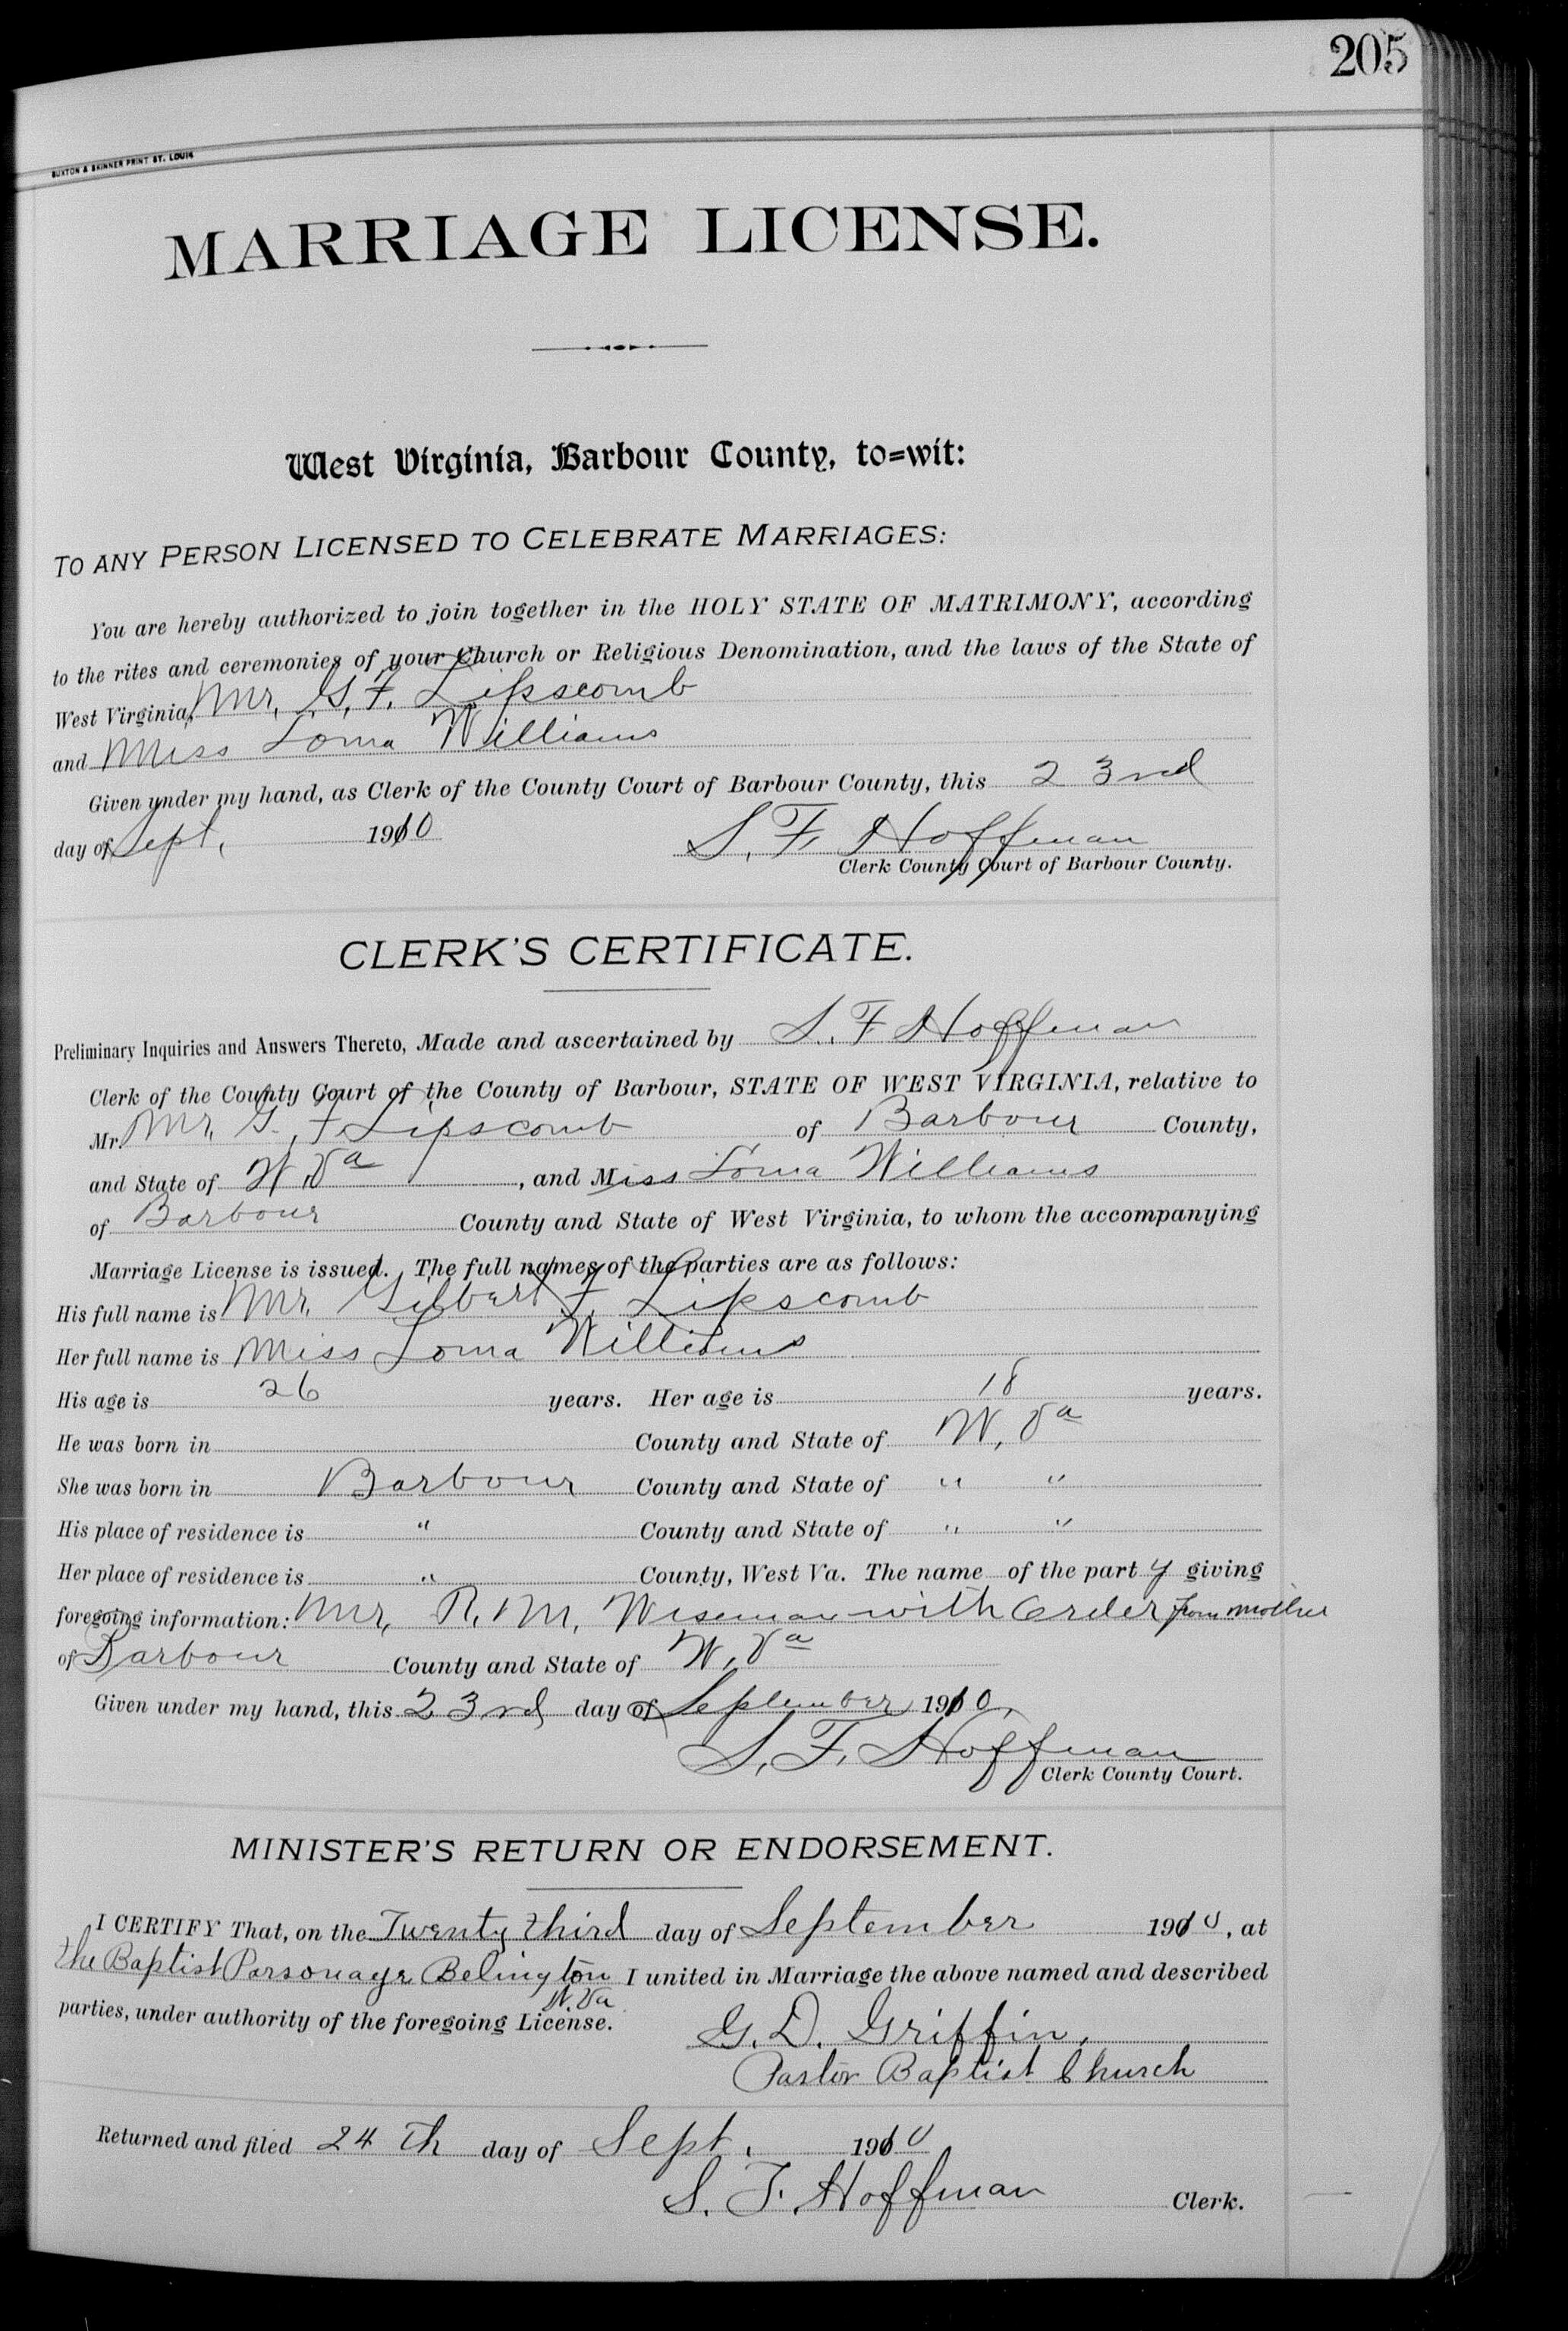 205
BUXTON & SKINNER PRINT ST. LOUIS
MARRIAGE LICENSE.
West Virginia, Barbour County, to=wit:
TO ANY PERSON LICENSED TO CELEBRATE MARRIAGES:
You are hereby authorized to join together in the HOLY STATE OF MATRIMONY, according
to the rites and ceremonies of your Church or Religious Denomination, and the laws of the State of
West Virginia, Mr. G. F. Lipscomb
and Miss Loma Williams
Given under my hand, as Clerk of the County Court of Barbour County, this 23rd
day of Sept. 1910 S. F. Hoffman
Clerk County Court of Barbour County.
CLERK'S CERTIFICATE.
Preliminary Inquiries and Answers Thereto, Made and ascertained by S. F Hoffman
Clerk of the County Court of the County of Barbour, STATE OF WEST VIRGINIA, relative to
Mr. Mr. G. F. Lipscomb of Barbour County,
and State of W. Va , and Miss Loma Williams
of Barbour County and State of West Virginia, to whom the accompanying
Marriage License is issued. The full names of the parties are as follows:
His full name is Mr. Gilbert F. Lipscomb
Her full name is Miss Loma Williams
His age is 26 years. Her age is 18 years.
He was born in County and State of W. Va
She was born in Barbour County and State of " "
His place of residence is " County and State of " "
Her place of residence is " County, West Va. The name of the part y giving
foregoing information: Mr, R. M. Wiseman with Order from mother
of Barbour County and State of W. Va
Given under my hand, this 23rd day of September 1910,
S. F. Hoffman
Clerk County Court.
MINISTER'S RETURN OR ENDORSEMENT.
I CERTIFY That, on the Twenty third day of September 1910, at
the Baptist Parsonage Belington I united in Marriage the above named and described
W. Va
parties, under authority of the foregoing License.
G. D. Griffin,
Pastor Baptist Church
Returned and filed 24th day of Sept. 1910
S. F. Hoffman Clerk.